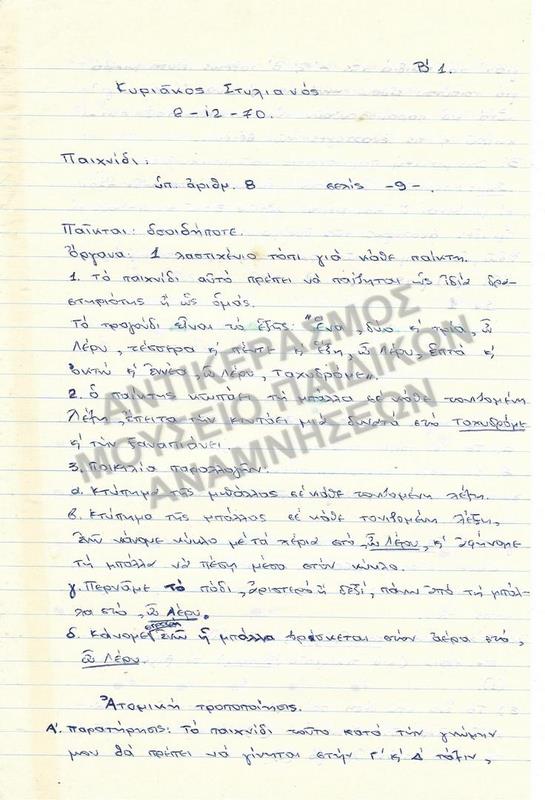 Β' 1.
Κυριᾶκος Στυλιανός
8-12-70.
Παιχνίδι:
ὑπ. ἀριθμ. 8 σελίς -9-.
Παῖκται: ὁσοιδήποτε.
Ὄργανα: 1 λαστιχένιο τόπι γιά κάθε παίκτη.
1. Τό παιχνίδι αὐτό πρέπει νά παίζηται ὡς ἰδία δρα-
στηριότης ἤ ὡς ὁμάς.
Τό τραγούδι εἶναι τό ἑξῆς: "Ἕνα, δύο κ' τρία, ὦ
Λέρυ, τέσσερα κ' πέντε κ' ἕξη, ὦ Λέρυ, ἑπτά κ'
ὀκτώ κ' ἐννέα, ὦ Λέρυ, ταχυδρόμε".
2. ὁ παίκτης κτυπάει τή μπάλλα σέ κάθε τονιζομένη
λέξη, ἔπειτα τήν κτυπάει μιά δυνατά στό ταχυδρόμε
κ' τήν ξαναπιάνει.
3. Ποικιλία παραλλαγῶν:
α. Κτύπημα τῆς μπάλλας σέ κάθε τονιζομένη λέξη.
β. Κτύπημα τῆς μπάλλας σέ κάθε τονιζομένη λέξη,
ἐνῶ κάνομε κύκλο μέ τά χέρια στό, ὦ Λέρυ, κ' ἀφήνομε
τή μπάλλα νά πέση μέσα στόν κύκλο.
γ. Περνᾶμε τό πόδι, ἀριστερό ἤ δεξί, πάνω ἀπό τή μπάλ-
λα στό, ὦ Λέρυ.
δ. Κάνομε στροφή ἐνῶ ἡ μπάλλα βρίσκεται στόν ἀέρα στό,
ὦ Λέρυ.
Ἀτομική τροποποίησις.
Α'. παρατήρησις: Τό παιχνίδι τοῦτο κατά τήν γνώμην
μου θά πρέπει νά γίνηται στήν Γ' κ' Δ' τάξιν,
ΑΝΤΙΚΕΡΑΣΜΟΣ
ΜΟΥΣΕΙΟ ΠΑΙΔΙΚΩΝ
ΑΝΑΜΝΗΣΕΩΝ